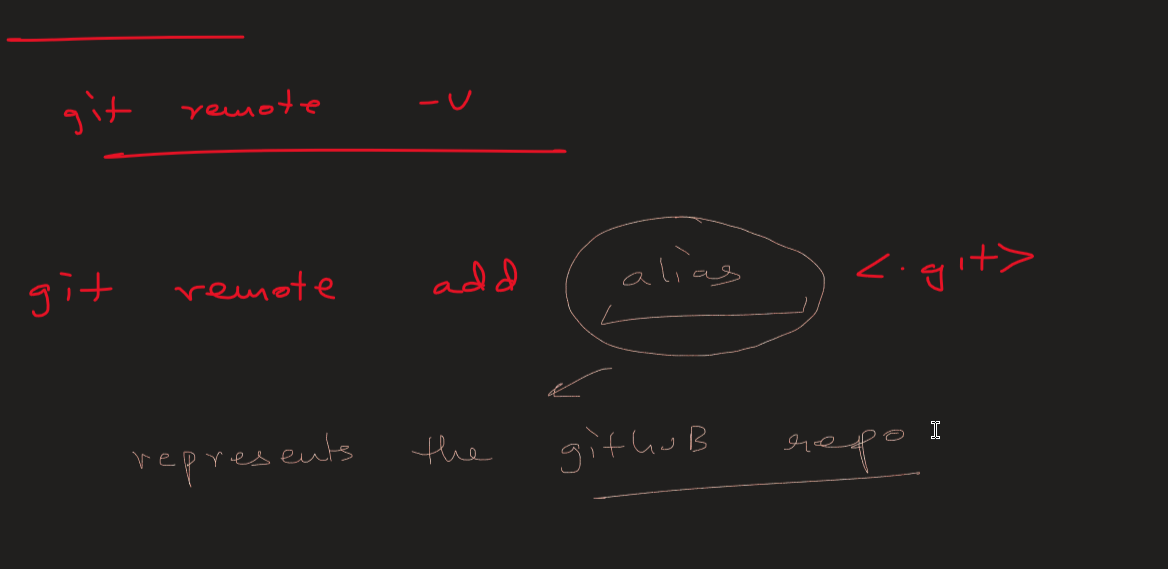 git remote -v
git remote add alias <.git>
represents the githuB repo